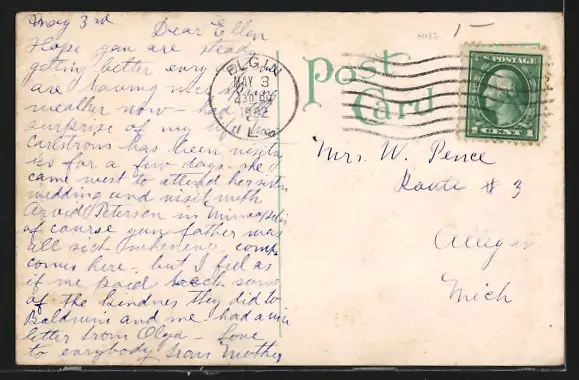 May 3rd
Dear Ellen
Hope you are steady
getting better every
are having nice
weather now - had
surprise of my life
Carlstroms has been visiting
us for a few days - she
came west to attend her sisters
wedding and visit with
Arvid Peterson in Minneapolis
of course your father was
all sick whenever comp
comes here - but I feel as
if we paid back some
of the kindnes they did to
Baldwins and me had a nice
letter from Olga - love
to everybody Mother
ELGIN
MAY 3
4 30 PM
1922
ILL.
8045
Post
Card
U.S. POSTAGE
1 CENT 1
Mrs. W. Pence
Route # 3
Allegan
Mich